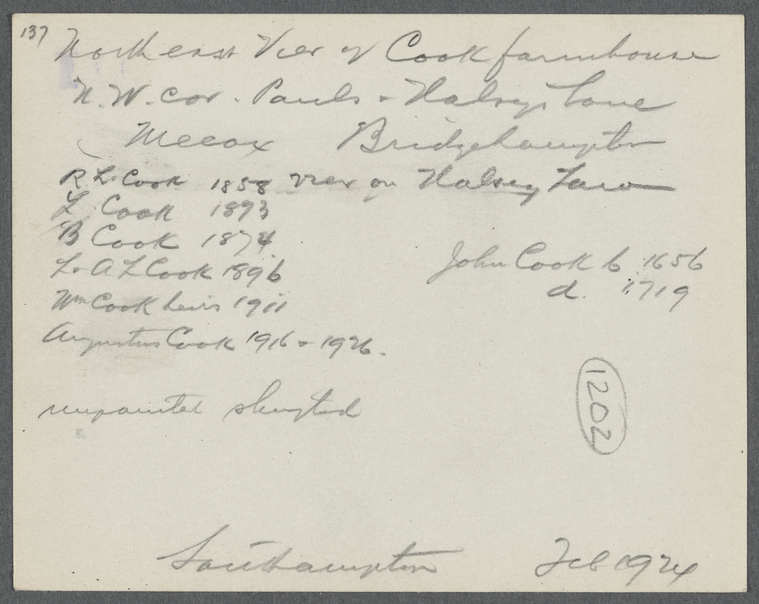 137
Northeast View of Cook farmhouse
N.W. cor. Pauls + Halseys Lane
Mecox Bridgehampton
R L. Cook 1858 View on Halsey Lane
L. Cook 1873
B Cook 1874
L. A L Cook 1896
Wm Cook heirs 1911
Augustus Cook 1916 + 1926.
John Cook b 1656
d. 1719
unpainted shingled
1202
Southampton Feb 1924